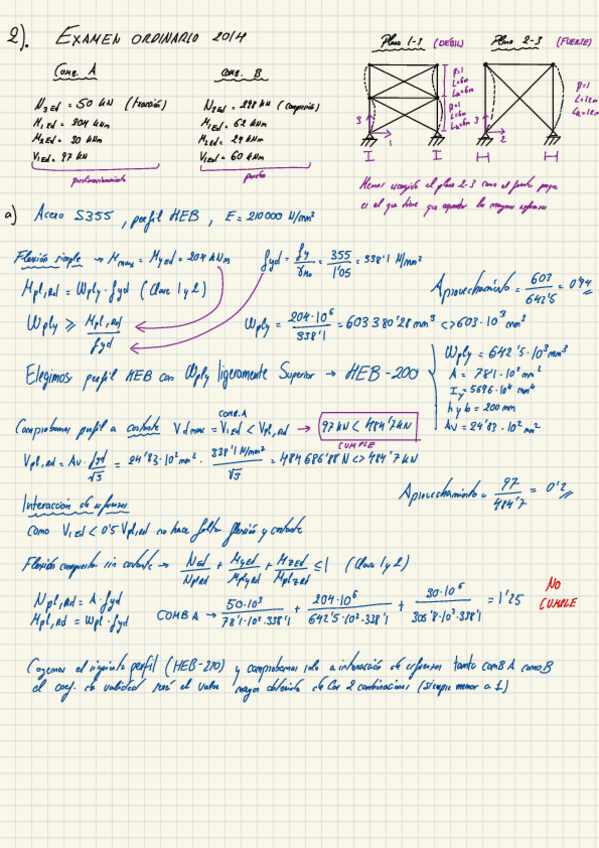 2). EXAMEN ORDINARIO 2014
Plano 1-3 (DEBIL) Plano 2-3 (FUERTE)
Comb. A
N3Ed = 50 kN (tracción)
M1Ed = 204 kNm
M2Ed = 30 kNm
V1Ed = 97 kN
predimensionamiento
COMB. B
N3Ed = 298 kN (compresión)
M1Ed = 62 kNm
M2Ed = 29 kNm
V1Ed = 60 kNm
pandeo
β=1
L=6m
Lk=6m
β=1
L=6m
Lk=6m
3
1
I I
β=1
L=12m
Lk=12m
3
2
H H
Hemos escogido el plano 2-3 como el fuerte porque
es el que tiene que aguantar los mayores esfuerzos
a) Acero S355, perfil HEB, E = 210000 N/mm²
Flexión simple → Mmax = MyEd = 204 kNm fyd = fy/γM0 = 355/1'05 = 338'1 N/mm²
Mpl,Rd = Wply · fyd (Clase 1 y 2)
Aprovechamiento = 603/642'5 = 0'94
Wply ≥ Mpl,Rd/fyd Wply = 204·10⁶/338'1 = 603 380'28 mm³ <> 603·10³ mm³
Elegimos perfil HEB con Wply ligeramente Superior → HEB-200
Wply = 642'5·10³ mm³
A = 78'1·10² mm²
Iy = 5696·10⁴ mm⁴
h y b = 200 mm
Av = 24'83·10² mm²
COMB. A
Comprobamos perfil a cortante Vdmax = V1Ed < Vpl,Rd → 97 kN < 484'7 kN
CUMPLE
Vpl,Rd = Av · fyd/√3 = 24'83·10² mm² · 338'1 N/mm²/√3 = 484 686'88 N <> 484'7 kN
Aprovechamiento = 97/484'7 = 0'2
Interacción de esfuerzos
como V1Ed < 0'5 Vpl,Rd no hace falta flexión y cortante
Flexión compuesta sin cortante → NEd/NplRd + MyEd/MplyRd + MzEd/MplzRd ≤ 1 (Clase 1 y 2)
Npl,Rd = A · fyd
Mpl,Rd = Wpl · fyd
COMB A → 50·10³/78'1·10²·338'1 + 204·10⁶/642'5·10³·338'1 + 30·10⁶/305'8·10³·338'1 = 1'25
NO
CUMPLE
Cogemos el siguiente perfil (HEB-220) y comprobamos solo a interacción de esfuerzos tanto comb A como B
el coef. de validez será el valor mayor obtenido de las 2 combinaciones (siempre menor a 1)